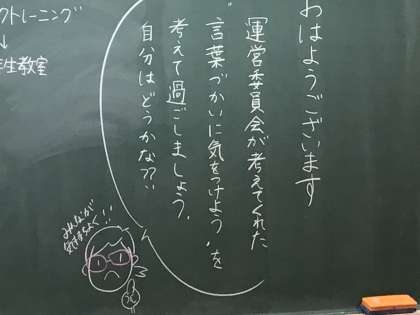 おはようございます
運営委員会が考えてくれた
“言葉づかいに気をつけよう”を
考えて過ごしましょう。
自分はどうかな??
みんなが
気持ちよく!!
クトレーニング
↓
生教室